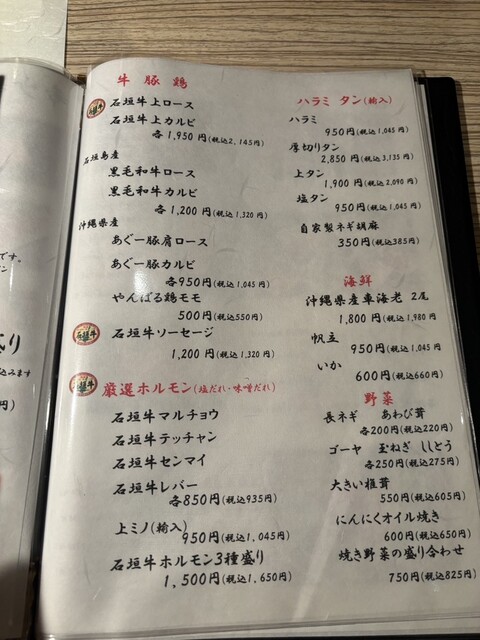 です。
り
込みます
円)
牛 豚 鶏
石垣牛上ロース
石垣牛上カルビ
各1,950円(税込2,145円)
石垣島産
黒毛和牛ロース
黒毛和牛カルビ
各1,200円(税込1,320円)
沖縄県産
あぐー豚肩ロース
あぐー豚カルビ
各950円(税込1,045円)
やんばる鶏モモ
500円(税込550円)
石垣牛ソーセージ
1,200円(税込1,320円)
厳選ホルモン(塩だれ・味噌だれ)
石垣牛マルチョウ
石垣牛テッチャン
石垣牛センマイ
石垣牛レバー
各850円(税込935円)
上ミノ(輸入)
950円(税込1,045円)
石垣牛ホルモン3種盛り
1,500円(税込1,650円)
ハラミ タン(輸入)
ハラミ
950円(税込1,045円)
厚切りタン
2,850円(税込3,135円)
上タン
1,900円(税込2,090円)
塩タン
950円(税込1,045円)
自家製ネギ胡麻
350円(税込385円)
海鮮
沖縄県産車海老 2尾
1,800円(税込1,980円
帆立
950円(税込1,045円
いか
600円(税込660円)
野菜
長ネギ あわび茸
各200円(税込220円)
ゴーヤ 玉ねぎ ししとう
各250円(税込275円)
大きい椎茸
550円(税込605円)
にんにくオイル焼き
600円(税込650円)
焼き野菜の盛り合わせ
750円(税込825円)